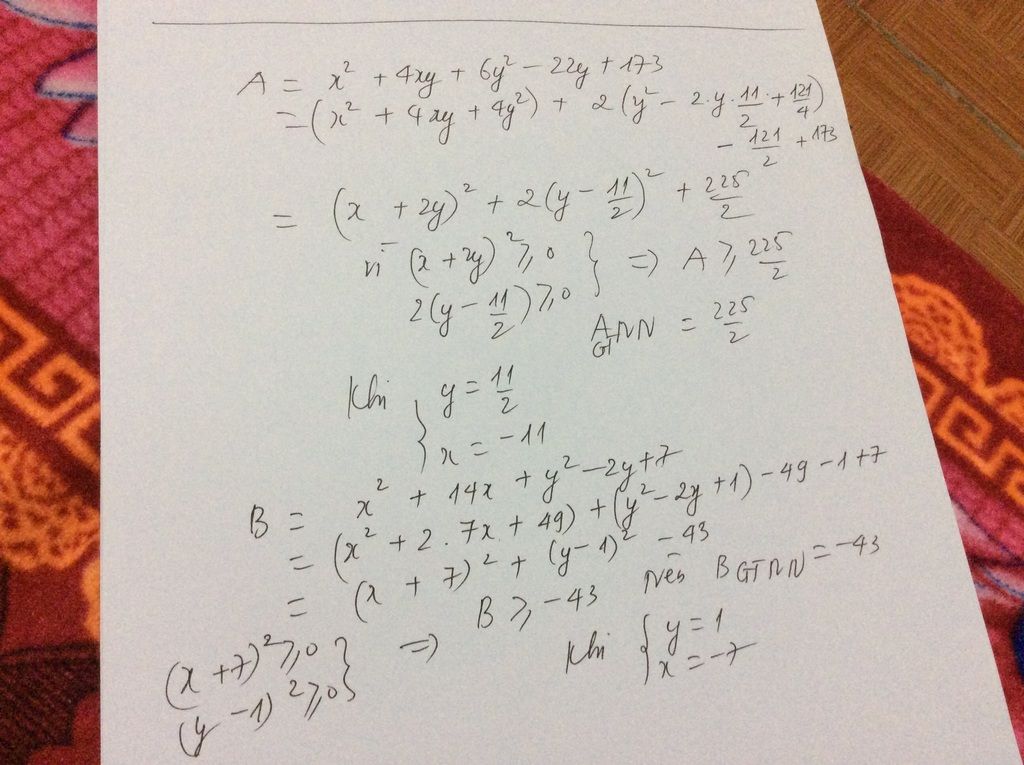 A = x² + 4xy + 6y² - 22y + 173
= (x² + 4xy + 4y²) + 2(y² - 2.y.11/2 + 121/4)
- 121/2 + 173
= (x + 2y)² + 2(y - 11/2)² + 225/2
vì (x + 2y)² ≥ 0 } => A ≥ 225/2
2(y - 11/2) ≥ 0
A GTNN = 225/2
Khi { y = 11/2
x = -11
B = x² + 14x + y² - 2y + 7
= (x² + 2.7x + 49) + (y² - 2y + 1) - 49 - 1 + 7
= (x + 7)² + (y - 1)² - 43
(x + 7)² ≥ 0 } => B ≥ -43 nên B GTNN = -43
(y - 1)² ≥ 0
Khi { y = 1
x = -7